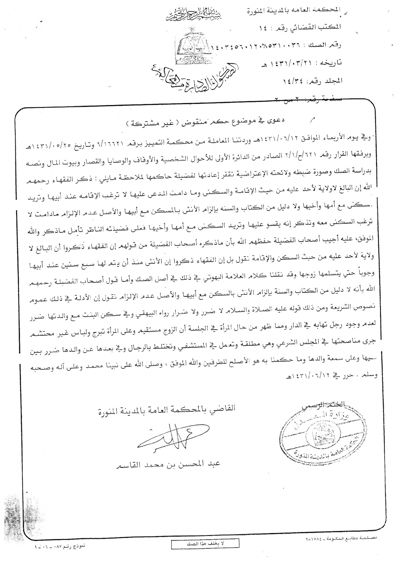 المحكمة العامة بالمدينة المنورة
المكتب القضائي رقم : ١٤
رقم الصك :
تاريخه : ١٤٣١/٠٣/٢١
المجلد رقم: ١٤/٣٤
صفحة رقم: ٢ من ٢
دعوى في موضوع حكم منقوض ( غير مشتركة )
وفي يوم الأربعاء الموافق ١٤٣١/٠٦/١٢هـ وردتنا المعاملة من محكمة التمييز برقم ٦/١٦٦٢١ وتاريخ ١٤٣١/٠٥/٢٥هـ
ويرفقها القرار رقم ١/٢/٦٢١ الصادر من الدائرة الأولى للأحوال الشخصية والأوقاف والوصايا والقصار وبيوت المال ونصه
بدراسة الصك وصورة ضبطه ولائحته الإعتراضية تقرر إعادتها لفضيلة حاكمها لملاحظة مايلي : ذكر الفقهاء رحمهم
الله إن البالغ لاولاية لأحد عليه من حيث الإقامة والسكنى وما دامت المدعى عليها لا ترغب الإقامة عند أبيها وتريد
السكنى مع أمها وأخيها ولا دليل من الكتاب والسنه بإلزام الأنثى بالسكن مع أبيها والأصل عدم الإلزام مادامت لا
ترغب السكنى معه وتذكر إنه يقسو عليها وتريد السكنى مع أمها وأخيها فعلى فضيلته الناظر تأمل ماذكر والله
الموفق، عليه أجيب أصحاب الفضيلة حفظهم الله بأن ماذكره أصحاب الفضيلة من قولهم إن الفقهاء ذكروا أن البالغ لا
ولاية لأحد عليه من حيث السكن والإقامة نقول بل إن الفقهاء ذكروا إن الأنثى منذ أن يتم لها سبع سنين عند أبيها
وجوباً حتى يتسلمها زوجها وقد نقلنا كلام العلامة البهوتي في ذلك في أصل الصك وأما قول أصحاب الفضيلة رحمهم
الله بأنه لا دليل من الكتاب والسنة بإلزام الأنثى بالسكن مع أبيها والأصل عدم الإلزام نقول إن الأدلة في ذلك عموم
نصوص الشريعة ومن ذلك قوله عليه الصلاة والسلام لا ضرر ولا ضرار رواه البيهقي وفي سكن البنت مع والدتها ضرر
لعدم وجود رجل تهابه في الدار وما ظهر من حال المرأة في الجلسة أن الزوج مستقيم وعلى المرأة تبرج ولباس غير محتشم
جرى مناصحتها في المجلس الشرعي وهي مطلقة وتعمل في المستشفى وتختلط بالرجال وفي بعدها عن والدها ضرر بين
عليها وعلى سمعة والدها وما حكمنا به هو الأصلح للطرفين والله الموفق ، وصلى الله على نبينا محمد وعلى آله وصحبه
وسلم . حرر في ١٤٣١/٠٦/١٢هـ
القاضي بالمحكمة العامة بالمدينة المنورة
عبد المحسن بن محمد القاسم
الختم الرسمي
وزارة العدل
المحكمة العامة بالمدينة المنورة
لا يغلف هذا الصك